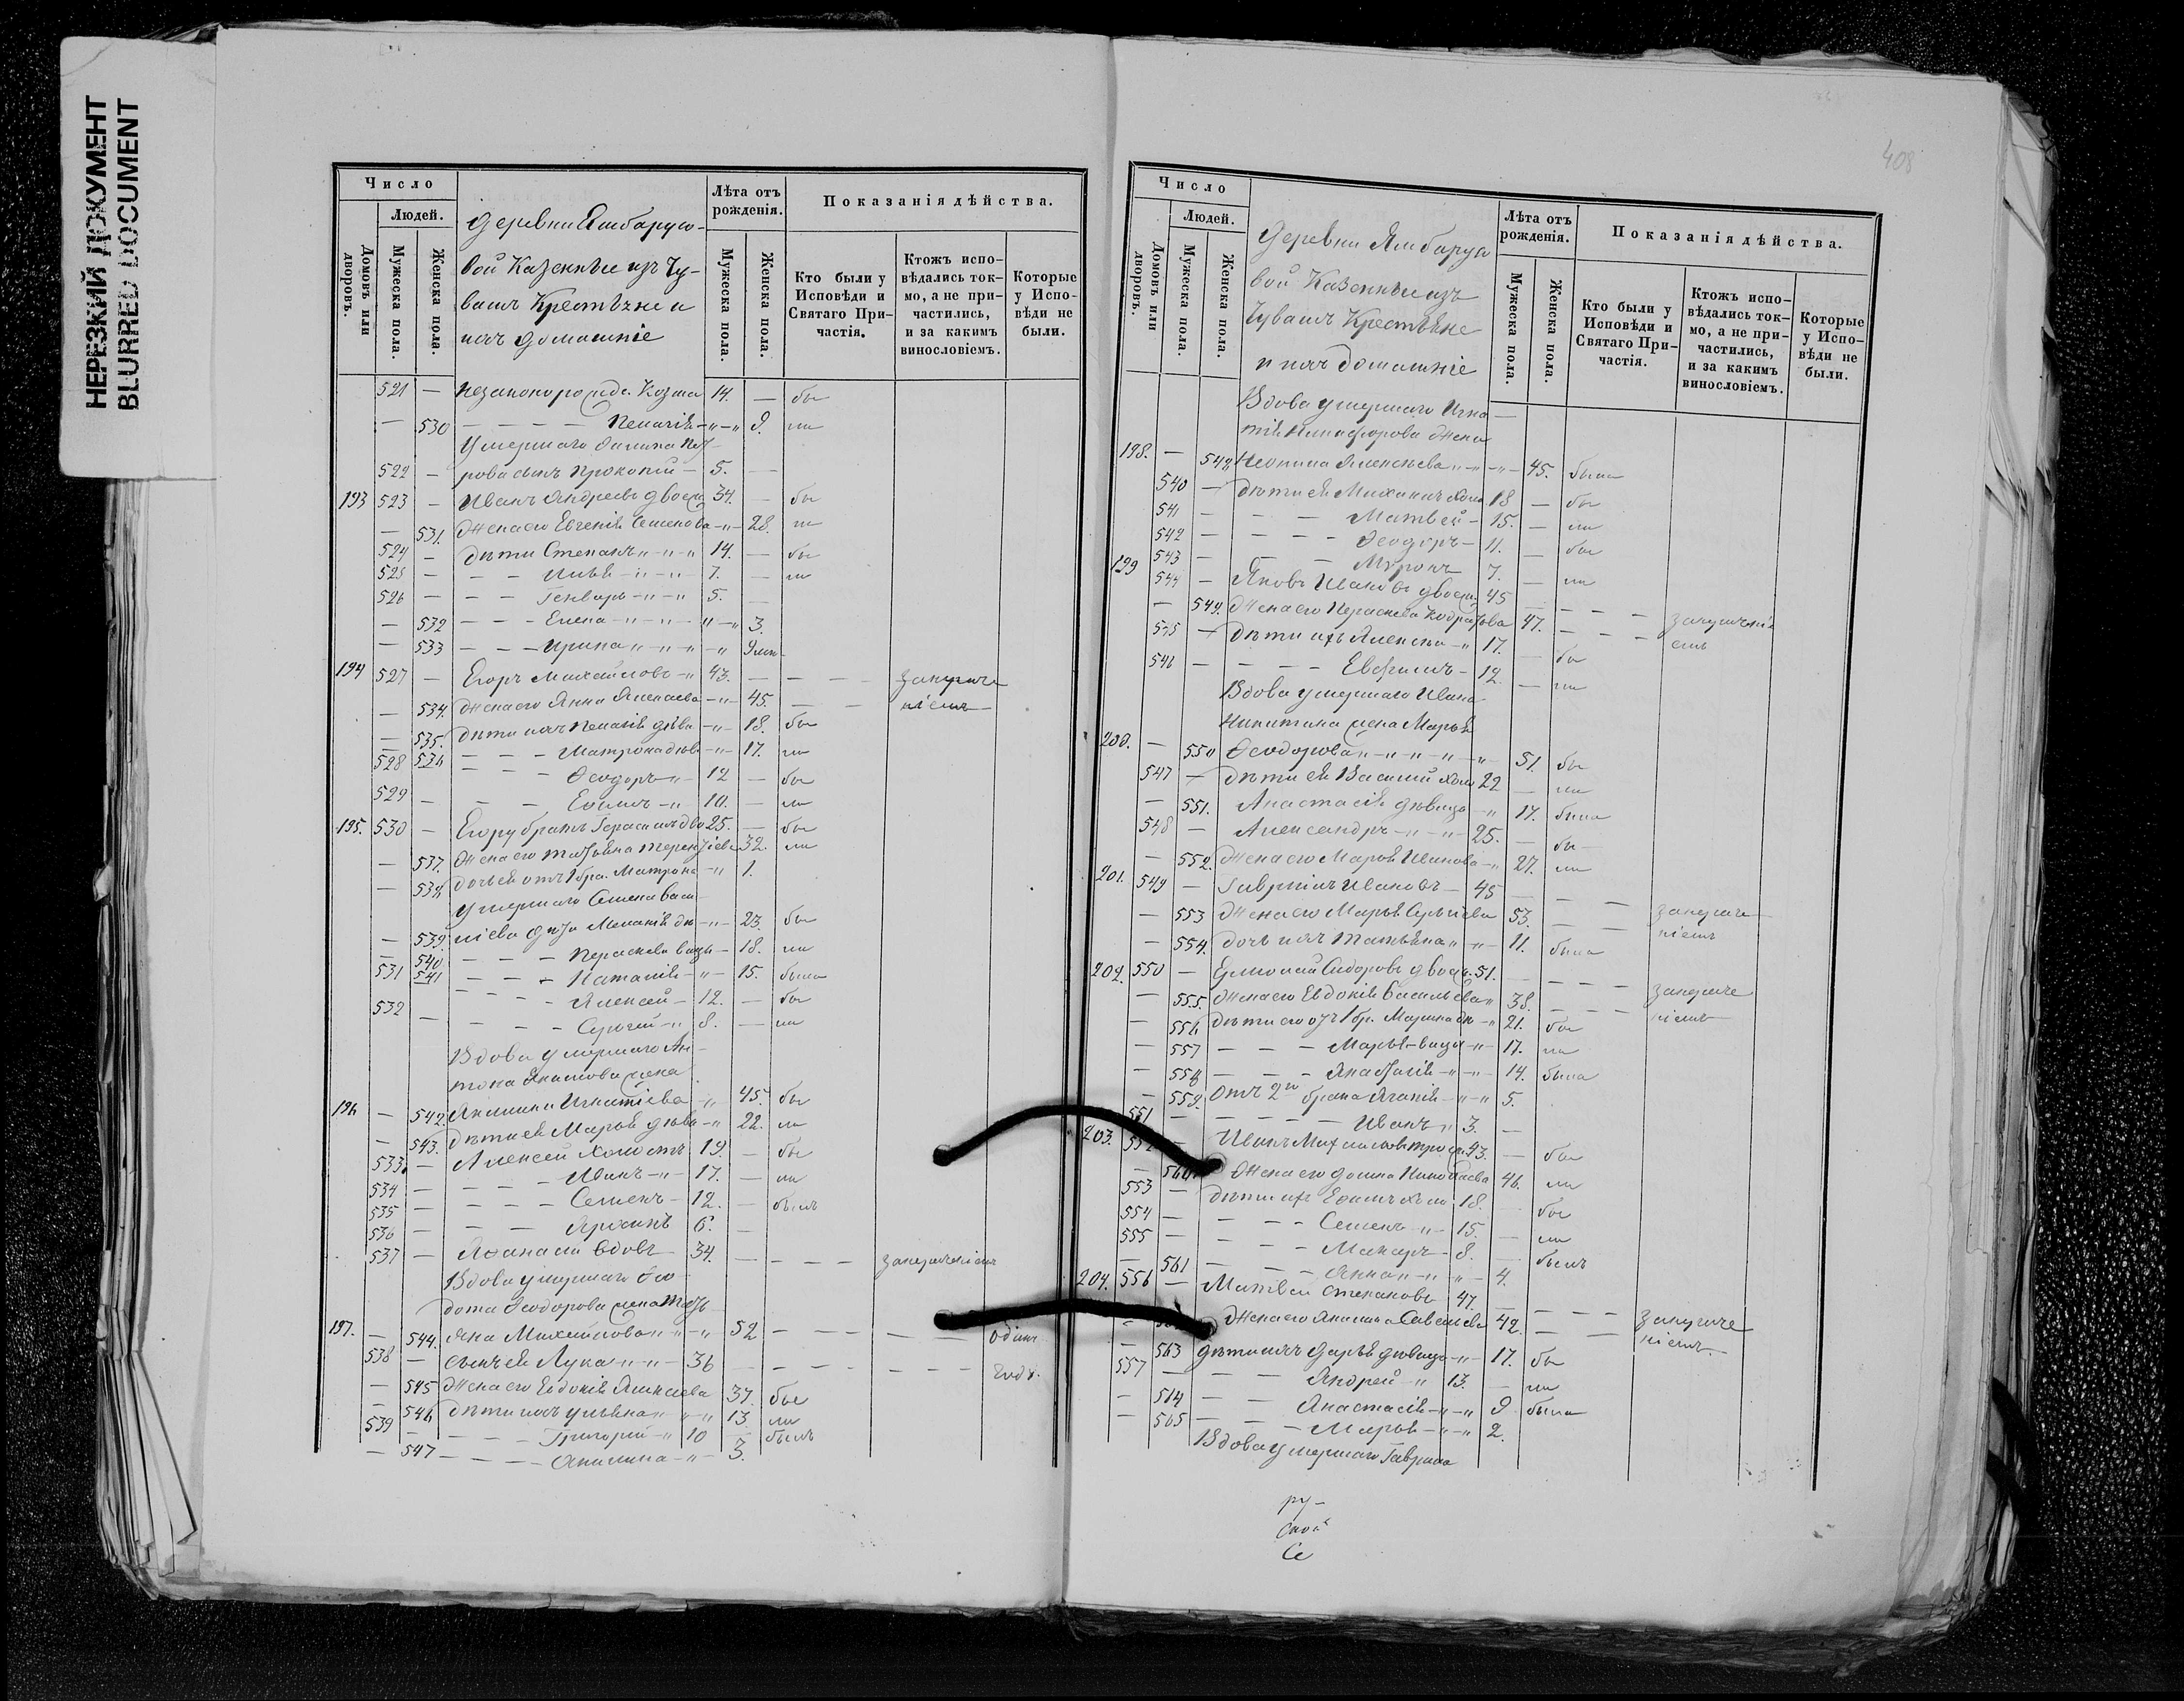 НЕРЕЗКИЙ ДОКУМЕНТ
BLURRED DOCUMENT
Число
Людей.
Домовъ или дворовъ.
Мужеска пола.
Женска пола.
деревни Ямбарусо-
вой Казенные изъ Чу-
вашъ Крестьяне и
ихъ домашніе
Лѣта отъ рожденія.
Мужеска пола.
Женска пола.
Показанія дѣйства.
Кто были у Исповѣди и Святаго При-частія.
Ктожъ испо-вѣдались ток-мо, а не при-частились, и за какимъ винословіемъ.
Которые у Испо-вѣди не были.
521 — незаконорожде. Козма 14. — бы
— 530 — Пелагія 9. ли
Умершаго
522 — рова сынъ Прокопій — 5. —
193 523 — Иванъ Андреевъ двоеж 34. — бы
— 531. Жена его Евгенія Семенова 28. ли
524 — дѣти Степанъ 14. — бы
525 — Илья 7. — ли
526 — Генварь 5. —
— 532 — Елена 3.
— 533 — Ирина 9 мес
194 527 — Егоръ Михайловъ 43. — — — заупуще
— 534. Жена его Анна Алексеева 45. — — ніемъ
— 535. дѣти ихъ Пелагія дѣви 18. бы
— 536 — Матрона дѣв 17. ли
528 — Ѳеодоръ 12 — бы
529 — Ефимъ 10. — ли
195. 530 — Егору братъ Герасимъ дво 25. — бы
— 537. Жена его Татьяна Терентіева 32. ли
— 538 дочь ея отъ 1 бра. Матрона 1.
умершаго Семена Васи-
— 539. ліева дѣти Меланія дѣ 23. бы
— 540 — Пераскева вицы 18. ли
— 541 — Наталія 15. была
531 — Алексей 12. — бы
532 — Сергей 8. — ли
Вдова умершаго Ан-
тона Якимова жена
196 — 542. Акилина Игнатіева 45. бы
— 543. дѣти ея Марья дѣви 22. ли
533. — Алексей холостъ 19. — бы
534 — Иванъ 17. — ли
535 — Семенъ 12. — былъ
536 — 6.
537 — Афанасій вдовъ 34. — — — — заупущеніемъ
Вдова умершаго Ѳео-
дота Ѳеодорова жена Тать-
197. — 544. яна Михайлова 52 — — — — — одинъ
538 — сынъ ея Лука 36 — — — — — годъ.
— 545 Жена его Евдокія Алексеева 37. бы
— 546 дѣти ихъ Ульяна 13. ли
539 — Григорій 10 — былъ
— 547 — Акилина 3.
408
Число
Людей.
Домовъ или дворовъ.
Мужеска пола.
Женска пола.
деревни Ямбарусо
вой Казенные изъ
Чувашъ Крестьяне
и ихъ домашніе
Лѣта отъ рожденія.
Мужеска пола.
Женска пола.
Показанія дѣйства.
Кто были у Исповѣди и Святаго При-частія.
Ктожъ испо-вѣдались ток-мо, а не при-частились, и за какимъ винословіемъ.
Которые у Испо-вѣди не были.
Вдова умершаго Игна —
тія Никифорова жена
198. — 548 Неонила Алексеева 45. была
540 — дѣти ея Михаилъ холо 18 — бы
541 — Матвей 15. — ли
542 — Ѳеодоръ 11. — бы
543 — Миронъ 7. — ли
199 544 — Яковъ Ивановъ двоеж. 45 — — — заупущені
— 549. Жена его Пераскева Кодратова 47. — — емъ
545 — дѣти ихъ Алексей 17. — бы
546 — Евфимъ 12. — ли
Вдова умершаго Ивана
Никитина жена Марья
200. — 550 Ѳеодорова 51. бы
547 — дѣти ея Василій холо 22 — ли
— 551. Анастасія дѣвица 17. была
548 — Александръ 25. — бы
— 552. Жена его Марья Иванова 27. ли
201. 549 — Гавріилъ Ивановъ 45 — — — заупуще
— 553 Жена его Марья Сергіева 53. — — ніемъ
— 554. дочь ихъ Татьяна 11. была
202. 550 — Ермолай Сидоровъ двоеж. 51. — — — заупуще
— 555. Жена его Евдокія Васильева 38. — — ніемъ
— 556 дѣти его отъ 1 бр. Марина дѣ 21. бы
— 557 — Марья вицы 17. ли
— 558 — Анастасія 14. была
— 559. Отъ 2го брака Агапія 5.
551 — Иванъ 3. —
203. 552 — Иванъ Михайловъ троеж. 43. — бы
— 560 Жена его Домна Николаева 46. ли
553 — дѣти ихъ Ефимъ холо 18. — бы
554 — Семенъ 15. — ли
555 — Макаръ 8. — былъ
— 561 — Анна 4.
204. 556 — Матвей Степановъ 47. — — — заупуще
— Жена его Акилина Савельева 42. — — ніемъ.
— 563 дѣти ихъ Дарья дѣвица 17. бы
557 — Андрей 13. — ли
— 514 — Анастасія 9 была
— 565 — Марья 2.
Вдова умершаго Гаврила
ру-
Се